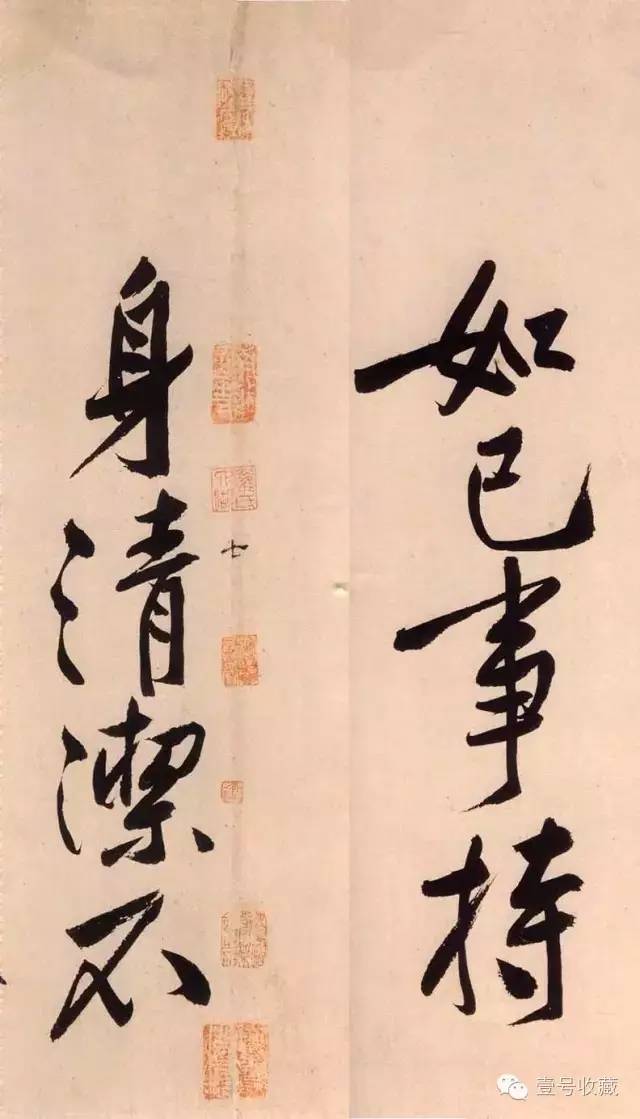 如已事持
七
身清潔不
壹号收藏